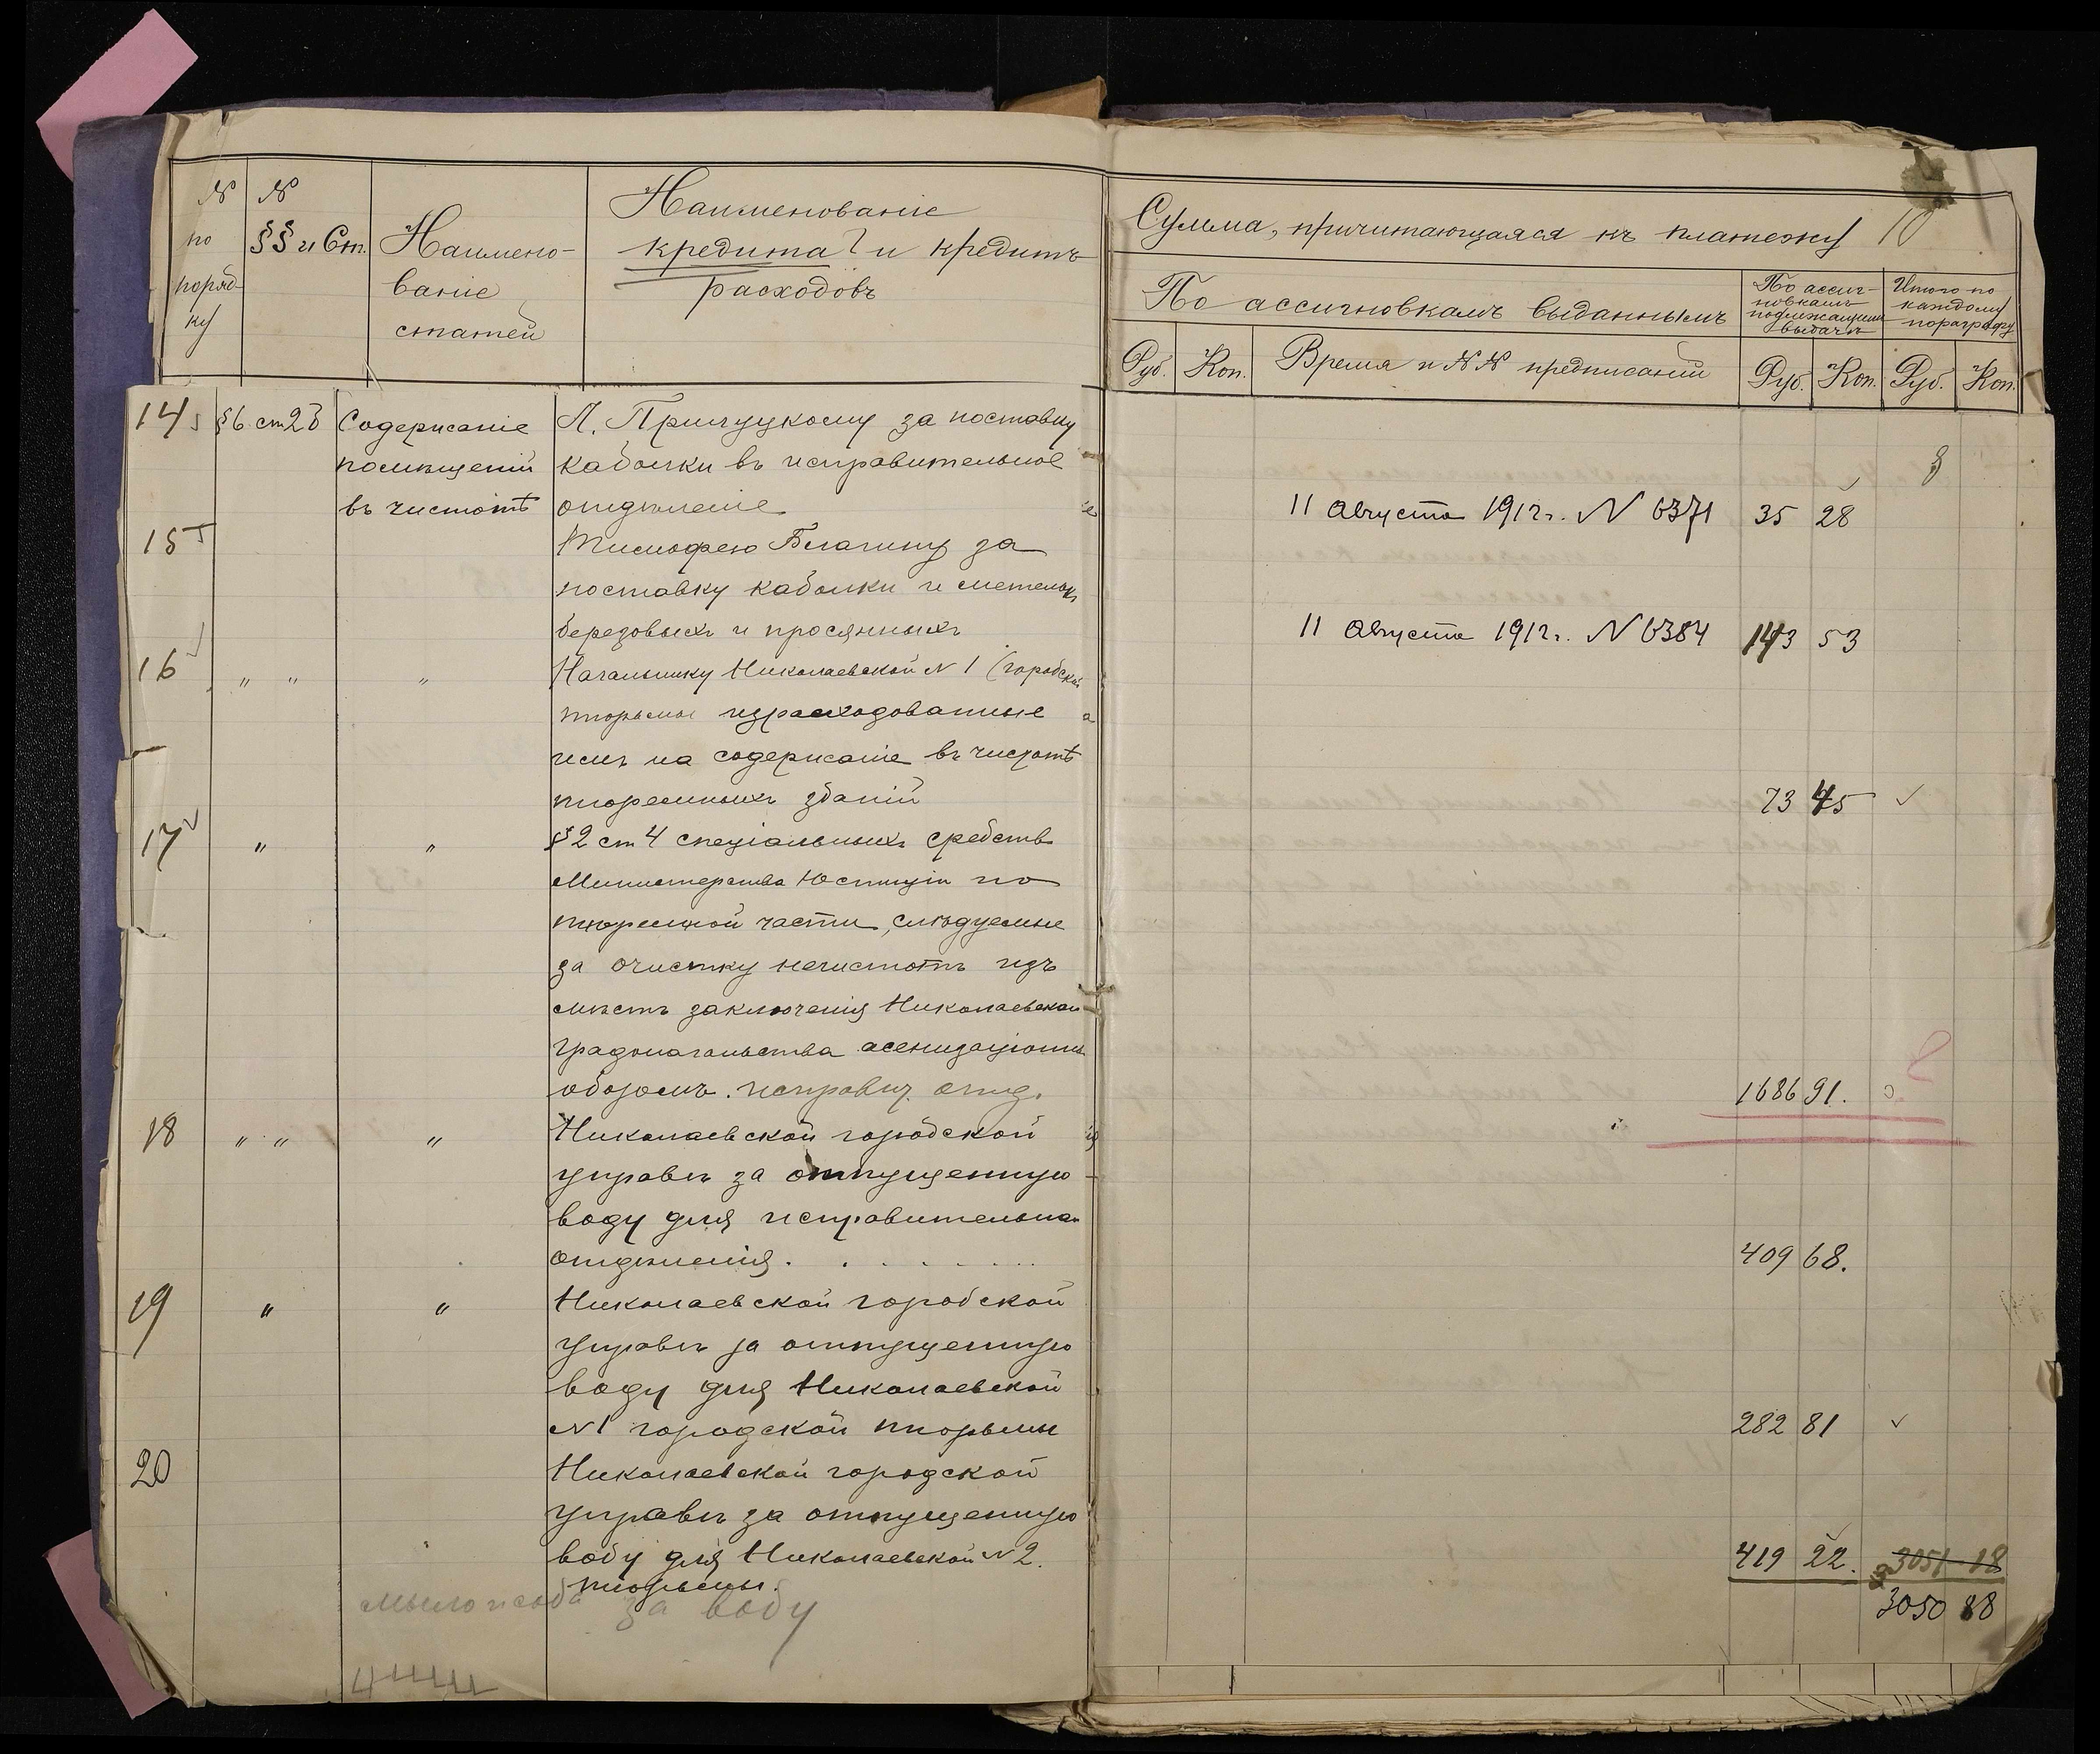 № по поряд-ку
№ §§ и Ст.
Наимено-
ваніе
статей
Наименованіе
кредита и кредитъ
расходовъ
Сумма, причитающаяся къ платежу 10
По ассигновкамъ выданнымъ
По ассиг-
новкамъ
подлежащимъ
выдачѣ
Итого по
каждому
пораграфу
Руб. Коп. Время и №№ предписаній Руб. Коп. Руб. Коп.
14 §6 ст 2 Содержаніе
помѣщеній
въ чистотѣ
за поставку
каболки въ исправительное
отдѣленіе
11 Августа 1912 г. N 6371 35 28
15 Тимофею за
поставку каболки и метелокъ
березовыхъ и просянныхъ
11 Августа 1912 г. N 6384 143 53
16 " " " Начальнику Николаевской N 1 (городской
тюрьмы израсходованные
имъ на содержаніе въ чистотѣ
тюремныхъ зданій
73 45
17 " " §2 ст 4 спеціальныхъ средствъ
Министерства Юстиціи по
тюремной части, слѣдуемые
за очистку нечистотъ изъ
мѣстъ заключенія Николаевскаго
градоначальства асенизаціоннымъ
обозомъ. исправит. отд.
1686 91.
18 " " " Николаевской городской
управѣ за отпущенную
воду для исправительнаго
отдѣленія. . . . . . . .
409 68.
19 " " Николаевской городской
управѣ за отпущенную
воду для Николаевской
N 1 городской тюрьмы
282 81
20 Николаевской городской
управѣ за отпущенную
воду для Николаевской N 2.
тюрьмы.
419 22. 3051 18
3050 88
мыло и сода за воду